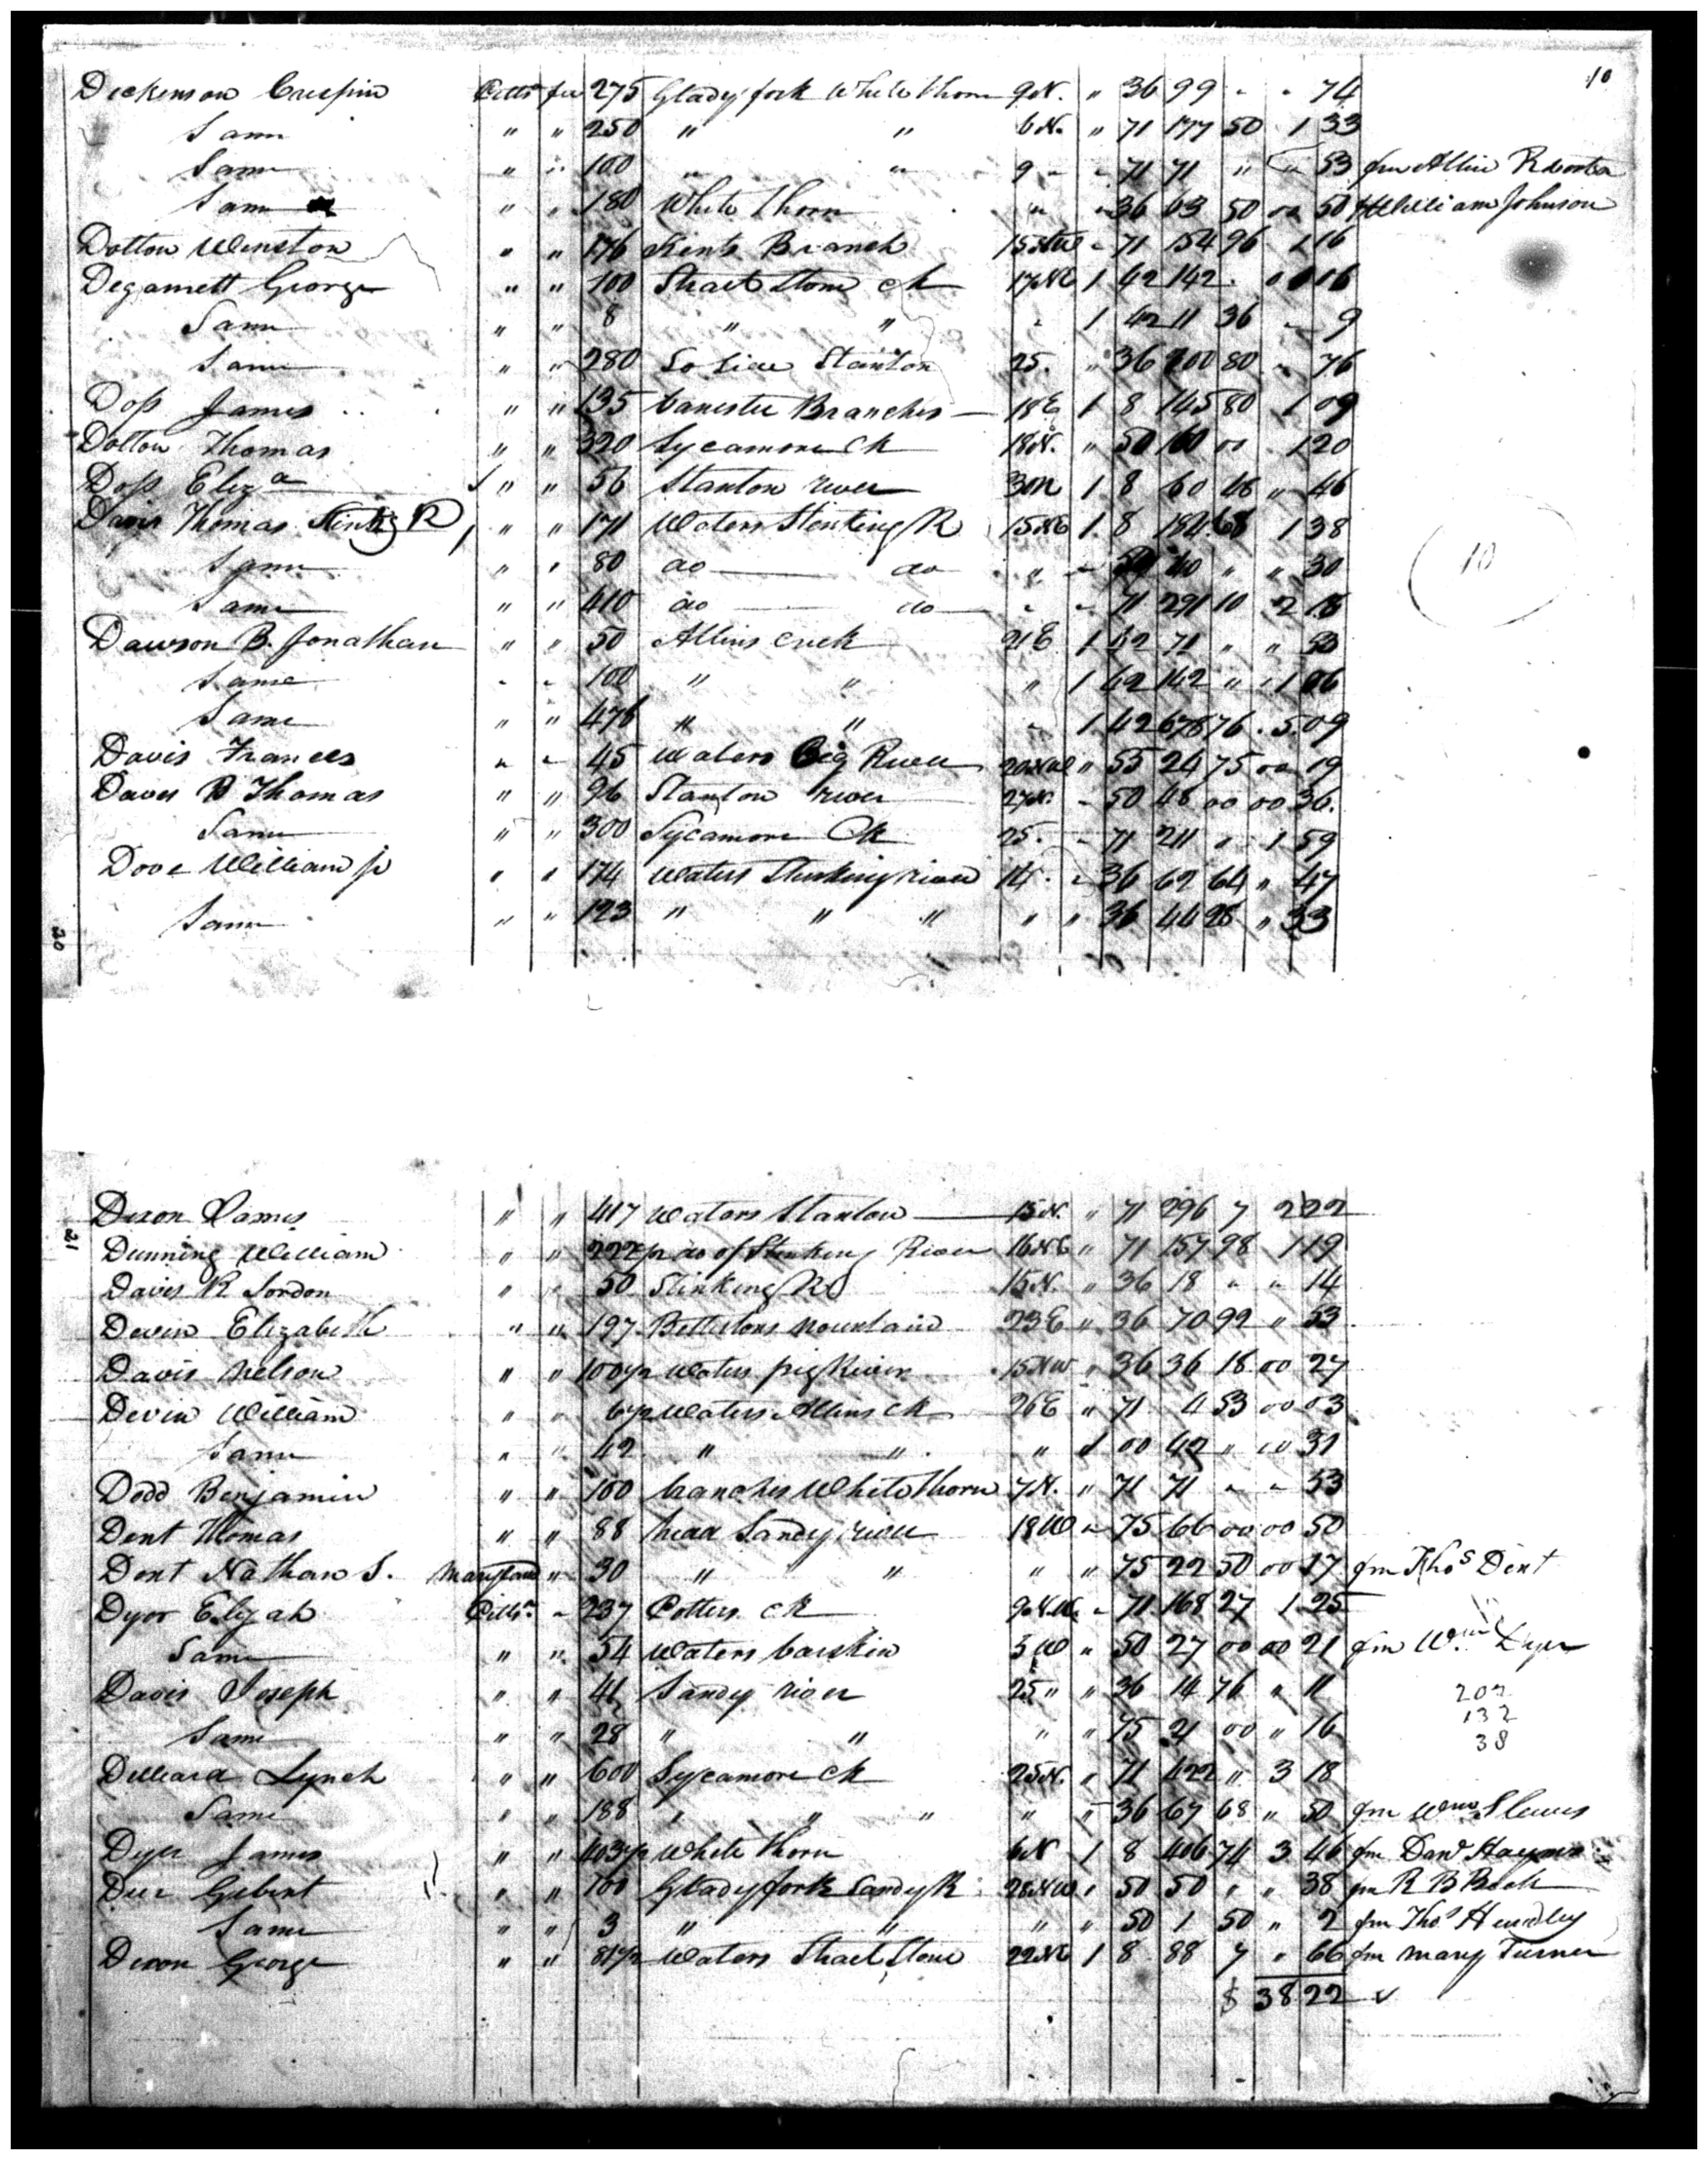 10
Dickenson Crispin Pitts fee 275 Glady fork White thorn 9 N. " 36 99 - - 74
Same " " 250 " " 6 N. " 71 177 50 1 33
Same " " 100 " " 9 - - 71 71 " " 53 fm Allin
Same " " 180 White thorn " " 36 63 50 00 50 William Johnson
Dotton Winston " " 176 Kents Branch 15 - 71 154 96 1 16
Degarnett George " " 100 Strait Stone ck 17 NE 1 42 142 1 06
Same " " 8 " " - 1 42 11 36 - 9
Same " " 280 So side Stanton 25. " 36 100 80 - 76
Doss James " " 135 banister Branches 18 E 1 8 145 80 1 09
Dotton Thomas " " 320 Sycamore Ck 18 N. " 50 160 00 1 20
Doss Eliza " " 56 Stanton river 30 N 1 8 60 48 " 46
Davis Thomas Stinkg R " " 171 Waters Stinking R 15 NE 1 8 184 68 1 38
Same " " 80 do do " - 50 40 " " 30
Same " " 410 do do - - 71 291 10 2 18
Dawson B. Jonathan " " 50 Allins creek 21 E 1 42 71 " " 53
Same - - 100 " " " 1 42 142 " 1 06
Same " " 478 " " - 1 42 678 76 5 09
Davis Frances " " 45 Waters Big River 20 NW " 55 24 75 00 19
Daves B Thomas " " 96 Stanton river 27 N. - 50 48 00 00 36.
Same " " 300 Sycamore Ck 25. - 71 211 " 1 59
Dove William jr " " 174 Waters Stinking river 14 - 36 62 64 " 47
Same " " 123 " " " " " 36 44 28 " 33
20
10
21
Dixon James " " 417 Waters Stanton 15 N. " 71 296 7 2 22
Dunning William " " 222 1/2 do of Stinking River 16 NE " 71 157 98 1 19
Daves R Jordon " " 50 Stinking R 15 N. " 36 18 " " 14
Devin Elizabeth " " 197 mountain 23 E " 36 70 92 " 53
Davis Nelson " " 100 1/2 Waters pig River 15 NW " 36 36 18 00 27
Devin William " " 6 1/2 Waters Allins ck 26 E " 71 4 53 00 03
Same " " 42 " " " 1 00 42 " 00 31
Dodd Benjamin " " 100 branches White thorn 7 N. " 71 71 " " 53
Dent Thomas " " 88 head Sandy river 18 W " 75 66 00 00 50
Dent Nathan S. Maryland " 30 " " " " 75 22 50 00 17 fm Thos Dent
Dyor Elijah Pittsa " 237 Potters ck 9 - 71 168 27 1 25
Same " " 54 Waters barskin 5 W " 50 27 00 00 21 fm Wm Dyer
Davis Joseph " " 41 Sandy river 25 " " 36 14 76 " 11
202
132
38
Same " " 28 " " " " 75 21 00 " 16
Dilliard Lynch " " 600 Sycamore ck 25 N. " 71 422 " 3 18
Same " " 188 " " " " " 36 67 68 " 50 fm Wm S Lewis
Dyer James " " 403 1/2 White thorn 6 N 1 8 406 74 3 46 fm Danl
Deer Gilbert " " 100 Glady fork Sandy R 28 NW " 50 50 " " 38 fm R B Beck
Same " " 3 " " " " 50 1 50 " 2 fm Thos Hundley
Dixon George " " 81 1/2 Waters Strait Stone 22 NE 1 8 88 7 " 66 fm Mary Turner
$ 38 22